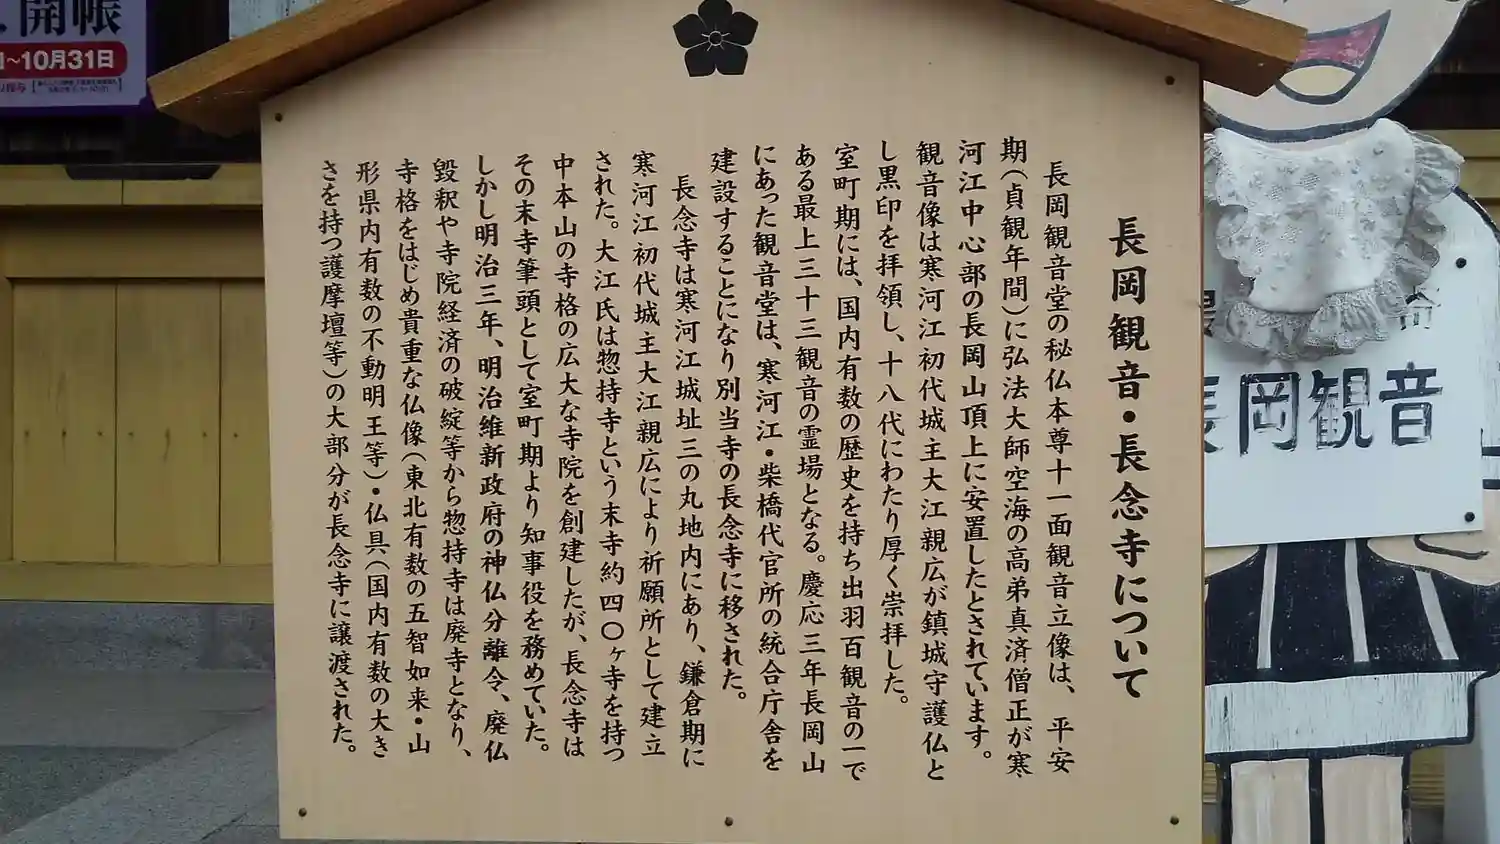 長岡観音・長念寺について
長岡観音堂の秘仏本尊十一面観音立像は、平安
期(貞観年間)に弘法大師空海の高弟真済僧正が寒
河江中心部の長岡山頂上に安置したとされています。
観音像は寒河江初代城主大江親広が鎮城守護仏と
し黒印を拝領し、十八代にわたり厚く崇拝した。
室町期には、国内有数の歴史を持ち出羽百観音の一で
ある最上三十三観音の霊場となる。慶応三年長岡山
にあった観音堂は、寒河江・柴橋代官所の統合庁舎を
建設することになり別当寺の長念寺に移された。
長念寺は寒河江城址三の丸地内にあり、鎌倉期に
寒河江初代城主大江親広により祈願所として建立
された。大江氏は惣持寺という末寺約四〇ヶ寺を持つ
中本山の寺格の広大な寺院を創建したが、長念寺は
その末寺筆頭として室町期より知事役を務めていた。
しかし明治三年、明治維新政府の神仏分離令、廃仏
毀釈や寺院経済の破綻等から惣持寺は廃寺となり、
寺格をはじめ貴重な仏像(東北有数の五智如来・山
形県内有数の不動明王等)・仏具(国内有数の大き
さを持つ護摩壇等)の大部分が長念寺に譲渡された。
開帳
~10月31日
長岡観音